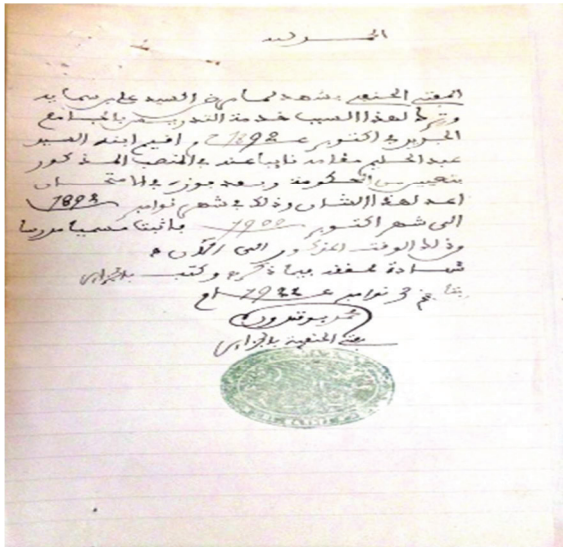 الحمد لله
المفتي الحنفي يشهد لما مرض السيد علي بن سماية
وترك لهذا السبب خدمة التدريس بالجامع
الجديد في اكتوبر 1892 و اقيم ابنه السيد
عبد الحليم مقامه نايبا عنه في المنصب المذكور
بتعيين من الحكومة وبعد فوزه في الامتحان
اعد لهذا الشان وذلك في شهر نوامبر 1892
الى شهر اكتوبر 1900 مدرسا
الوقت المذكور الى الآن
شهادة بما ذكره وكتب بالجزاير
بتاريخ 3 نوامبر
محمد بوقندورة
مفتي الحنفية بالجزاير